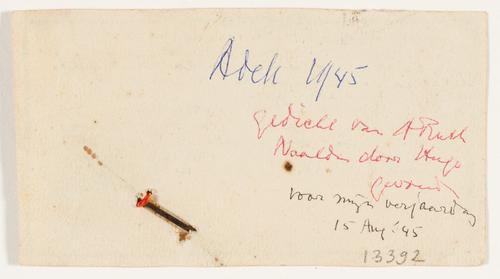 Adek 1945
gedicht van A Ruth
Naaldje door Hugo
voor mijn verjaardag
15 Aug '45
13392